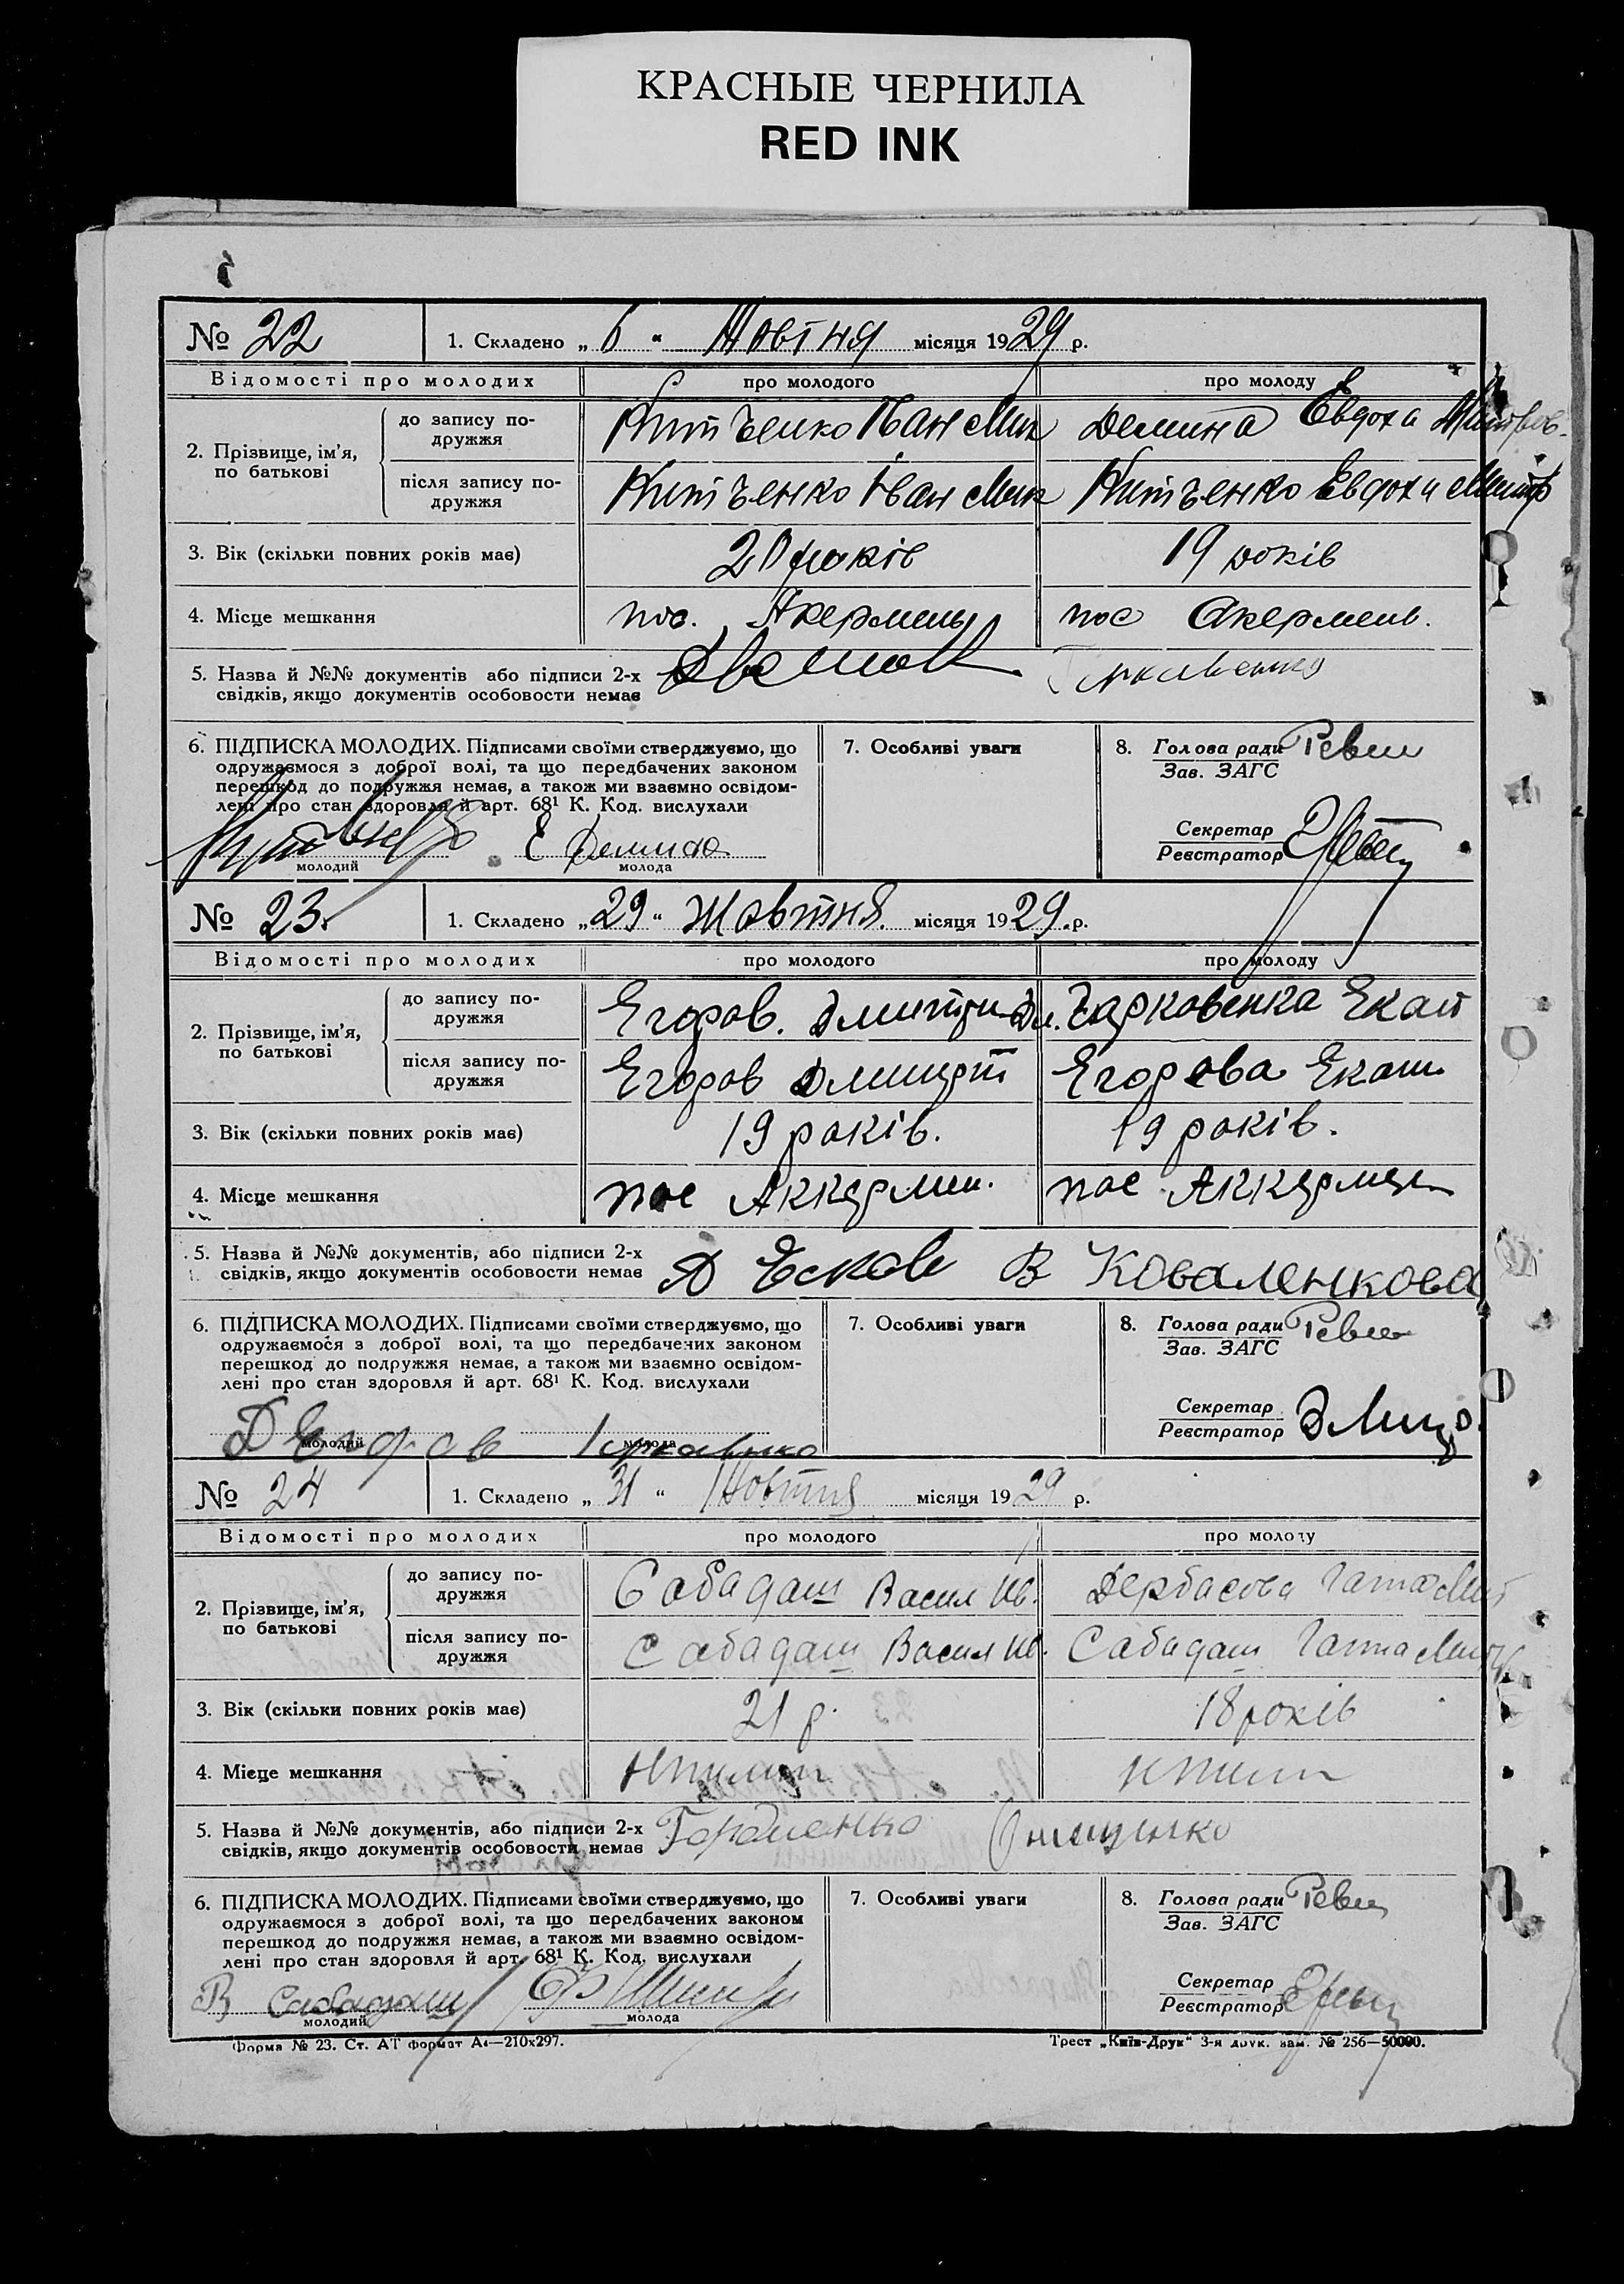 КРАСНЫЕ ЧЕРНИЛА
RED INK
№ 22 1. Складено „ 6 “ Жовтня місяця 1929 р.
Відомості про молодих про молодого про молоду
2. Прізвище, ім’я, по батькові
до запису по-дружжя Демина Евдоха
після запису по-дружжя Іван Евдоха
3. Вік (скільки повних років має) 20 років 19 років
4. Місце мешкання пос. Акермень пос Акермень.
5. Назва й №№ документів або підписи 2-х
свідків, якщо документів особовости немає
6. ПІДПИСКА МОЛОДИХ. Підписами своїми стверджуємо, що
одружаємося з доброї волі, та що передбачених законом
перешкод до подружжя немає, а також ми взаємно освідом-
лені про стан здоровля й арт. 68¹ К. Код. вислухали
Е Демина
молодий молода
7. Особливі уваги
8. Голова ради
Зав. ЗАГС
Секретар
Реєстратор
№ 23. 1. Складено „29“ Жовтня. місяця 1929.р.
Відомості про молодих про молодого про молоду
2. Прізвище, ім’я, по батькові
до запису по-дружжя Егоров. Екат
після запису по-дружжя Егоров Егорова Екат
3. Вік (скільки повних років має) 19 років. 19 років.
4. Місце мешкання пос Аккермен. пос Аккермен
5. Назва й №№ документів, або підписи 2-х
свідків, якщо документів особовости немає Д Есков В Коваленкова
6. ПІДПИСКА МОЛОДИХ. Підписами своїми стверджуємо, що
одружаємося з доброї волі, та що передбачених законом
перешкод до подружжя немає, а також ми взаємно освідом-
лені про стан здоровля й арт. 68¹ К. Код. вислухали
Д Егоров
молодий молода
7. Особливі уваги
8. Голова ради
Зав. ЗАГС
Секретар
Реєстратор
№ 24 1. Складено „ 31 “ Жовтня місяця 1929 р.
Відомості про молодих про молодого про молоду
2. Прізвище, ім’я, по батькові
до запису по-дружжя Сабадаш Васил Ів. Дербасова Ганна
після запису по-дружжя Сабадаш Васил Ів. Сабадаш Ганна
3. Вік (скільки повних років має) 21 р. 18 років
4. Місце мешкання
5. Назва й №№ документів, або підписи 2-х
свідків, якщо документів особовости немає Гордиенко Онищенко
6. ПІДПИСКА МОЛОДИХ. Підписами своїми стверджуємо, що
одружаємося з доброї волі, та що передбачених законом
перешкод до подружжя немає, а також ми взаємно освідом-
лені про стан здоровля й арт. 68¹ К. Код. вислухали
В Сабадаш
молодий молода
7. Особливі уваги
8. Голова ради
Зав. ЗАГС
Секретар
Реєстратор
Форма № 23. Ст. АТ формат А₄—210x297. Трест „Київ-Друк“ 3-я друк. зам. № 256—50000.